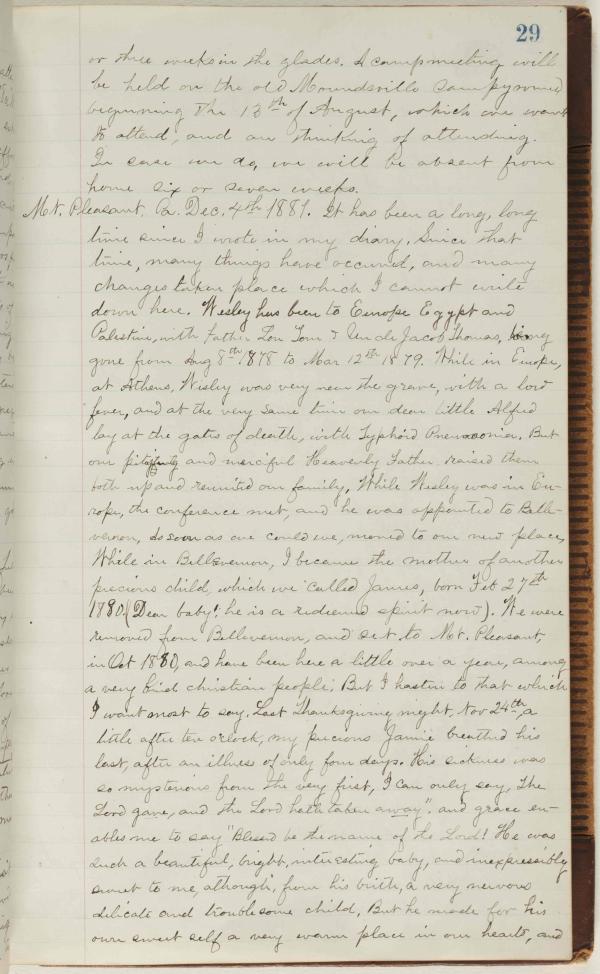 29
or three weeks in the glades. A campmeeting will
be held on the old Moundsville Camp ground
beginning the 13th of August, which we want
to attend, and are thinking of attending.
In case we do, we will be absent from
home six or seven weeks.
Mt. Pleasant. Pa. Dec. 4th 1881. It has been a long, long
time since I wrote in my diary. Since that
time, many things have occured, and many
changes taken place which I cannot write
down here. Wesley has been to Europe Egypt and
Palestine, with Father Tom & Uncle Jacob Thomas,
gone from Aug 8th 1878 to Mar 12th 1879. While in Europe,
at Athens, Wesley was very near the grave, with a low
fever, and at the very same time our dear little Alfred
lay at the gates of death, with Typhoid Pneumonia. But
our pitying and merciful Heavenly Father, raised them
both up and reunited our family. While Wesley was in Eu-
rope, the conference met, and he was appointed to Belle-
vernon, So soon as we could we, moved to our new place,
While in Bellevernon, I became the mother of another
precious child, which we called James, born Feb 27th
1880. (Dear baby! he is a redeemed spirit now). We were
removed from Bellevernon, and set to Mt. Pleasant,
in Oct 1880, and have been here a little over a year, among
a very kind christian people. But I hasten to that which
I want most to say. Last Thanksgiving night, Nov 24th, a
little after ten o'clock, my precious Jamie breathed his
last, after an illness of only four days. His sickness was
so mysterious from the very first, I can only say, "The
Lord gave, and the Lord hath taken away". and grace en-
ables me to say "Blessed be the name of the Lord! He was
such a beautiful, bright, interesting baby, and inexpressibly
sweet to me, although, from his birth, a very nervous
delicate and troublesome child, But he made for his
own sweet self a very warm place in our hearts, and